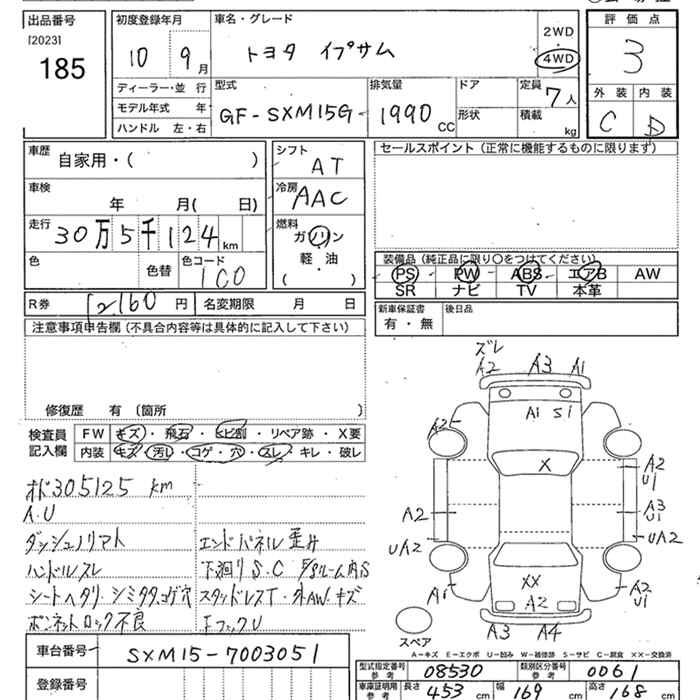 出品番号
[2023]
185
初度登録年月
10 9月
車名・グレード
トヨタ イプサム
2WD
4WD
評価点
3
外装 内装
C D
ディーラー・並行
モデル年式 年
ハンドル 左・右
型式
GF-SXM15G
排気量
1990 CC
ドア
形状
定員
7人
積載
kg
車歴
自家用・( )
車検
年 月( 日)
走行
30万5千124km
色
色替
色コード
1C0
シフト
AT
冷房
AAC
燃料
ガソリン
軽・油
( )
セールスポイント(正常に機能するものに限ります)
装備品(純正品に限り○をつけてください)
PS PW ABS エアB AW
SR ナビ TV 本革
R券
12,160円
名変期限 月 日
新車保証書
有・無
後日品
注意事項申告欄(不具合内容等は具体的に記入して下さい)
修復歴 有 〔箇所 〕
検査員
記入欄
FW キズ・飛石・ヒビ割・リペア跡・X要
内装 キズ・汚レ・コゲ・穴・スレ・キレ・破レ
オド305125 km
A・U
ダッシュノリマト
ハンドルスレ
シートヘタリ・シミタタコゲ穴
ボンネットロック不良
エンドパネル歪ミ
下廻りS.C
スタッドレスT・外AW・キズ
ズレ
A2 A3 A1
A1 S1
A2
X
A2
U1
A2
A3
U1
UA2
UA2
XX
A2
A1
A2
U1
A3 A4
スペア
A-キズ E-エクボ U-凹み W-補修跡 S-サビ C-腐食 XX-交換済
車台番号
SXM15-7003051
登録番号
型式指定番号
参考
08530
類別区分番号
参考
0061
車庫証明用
参考
長さ 453 cm 幅 169 cm 高さ 168 cm